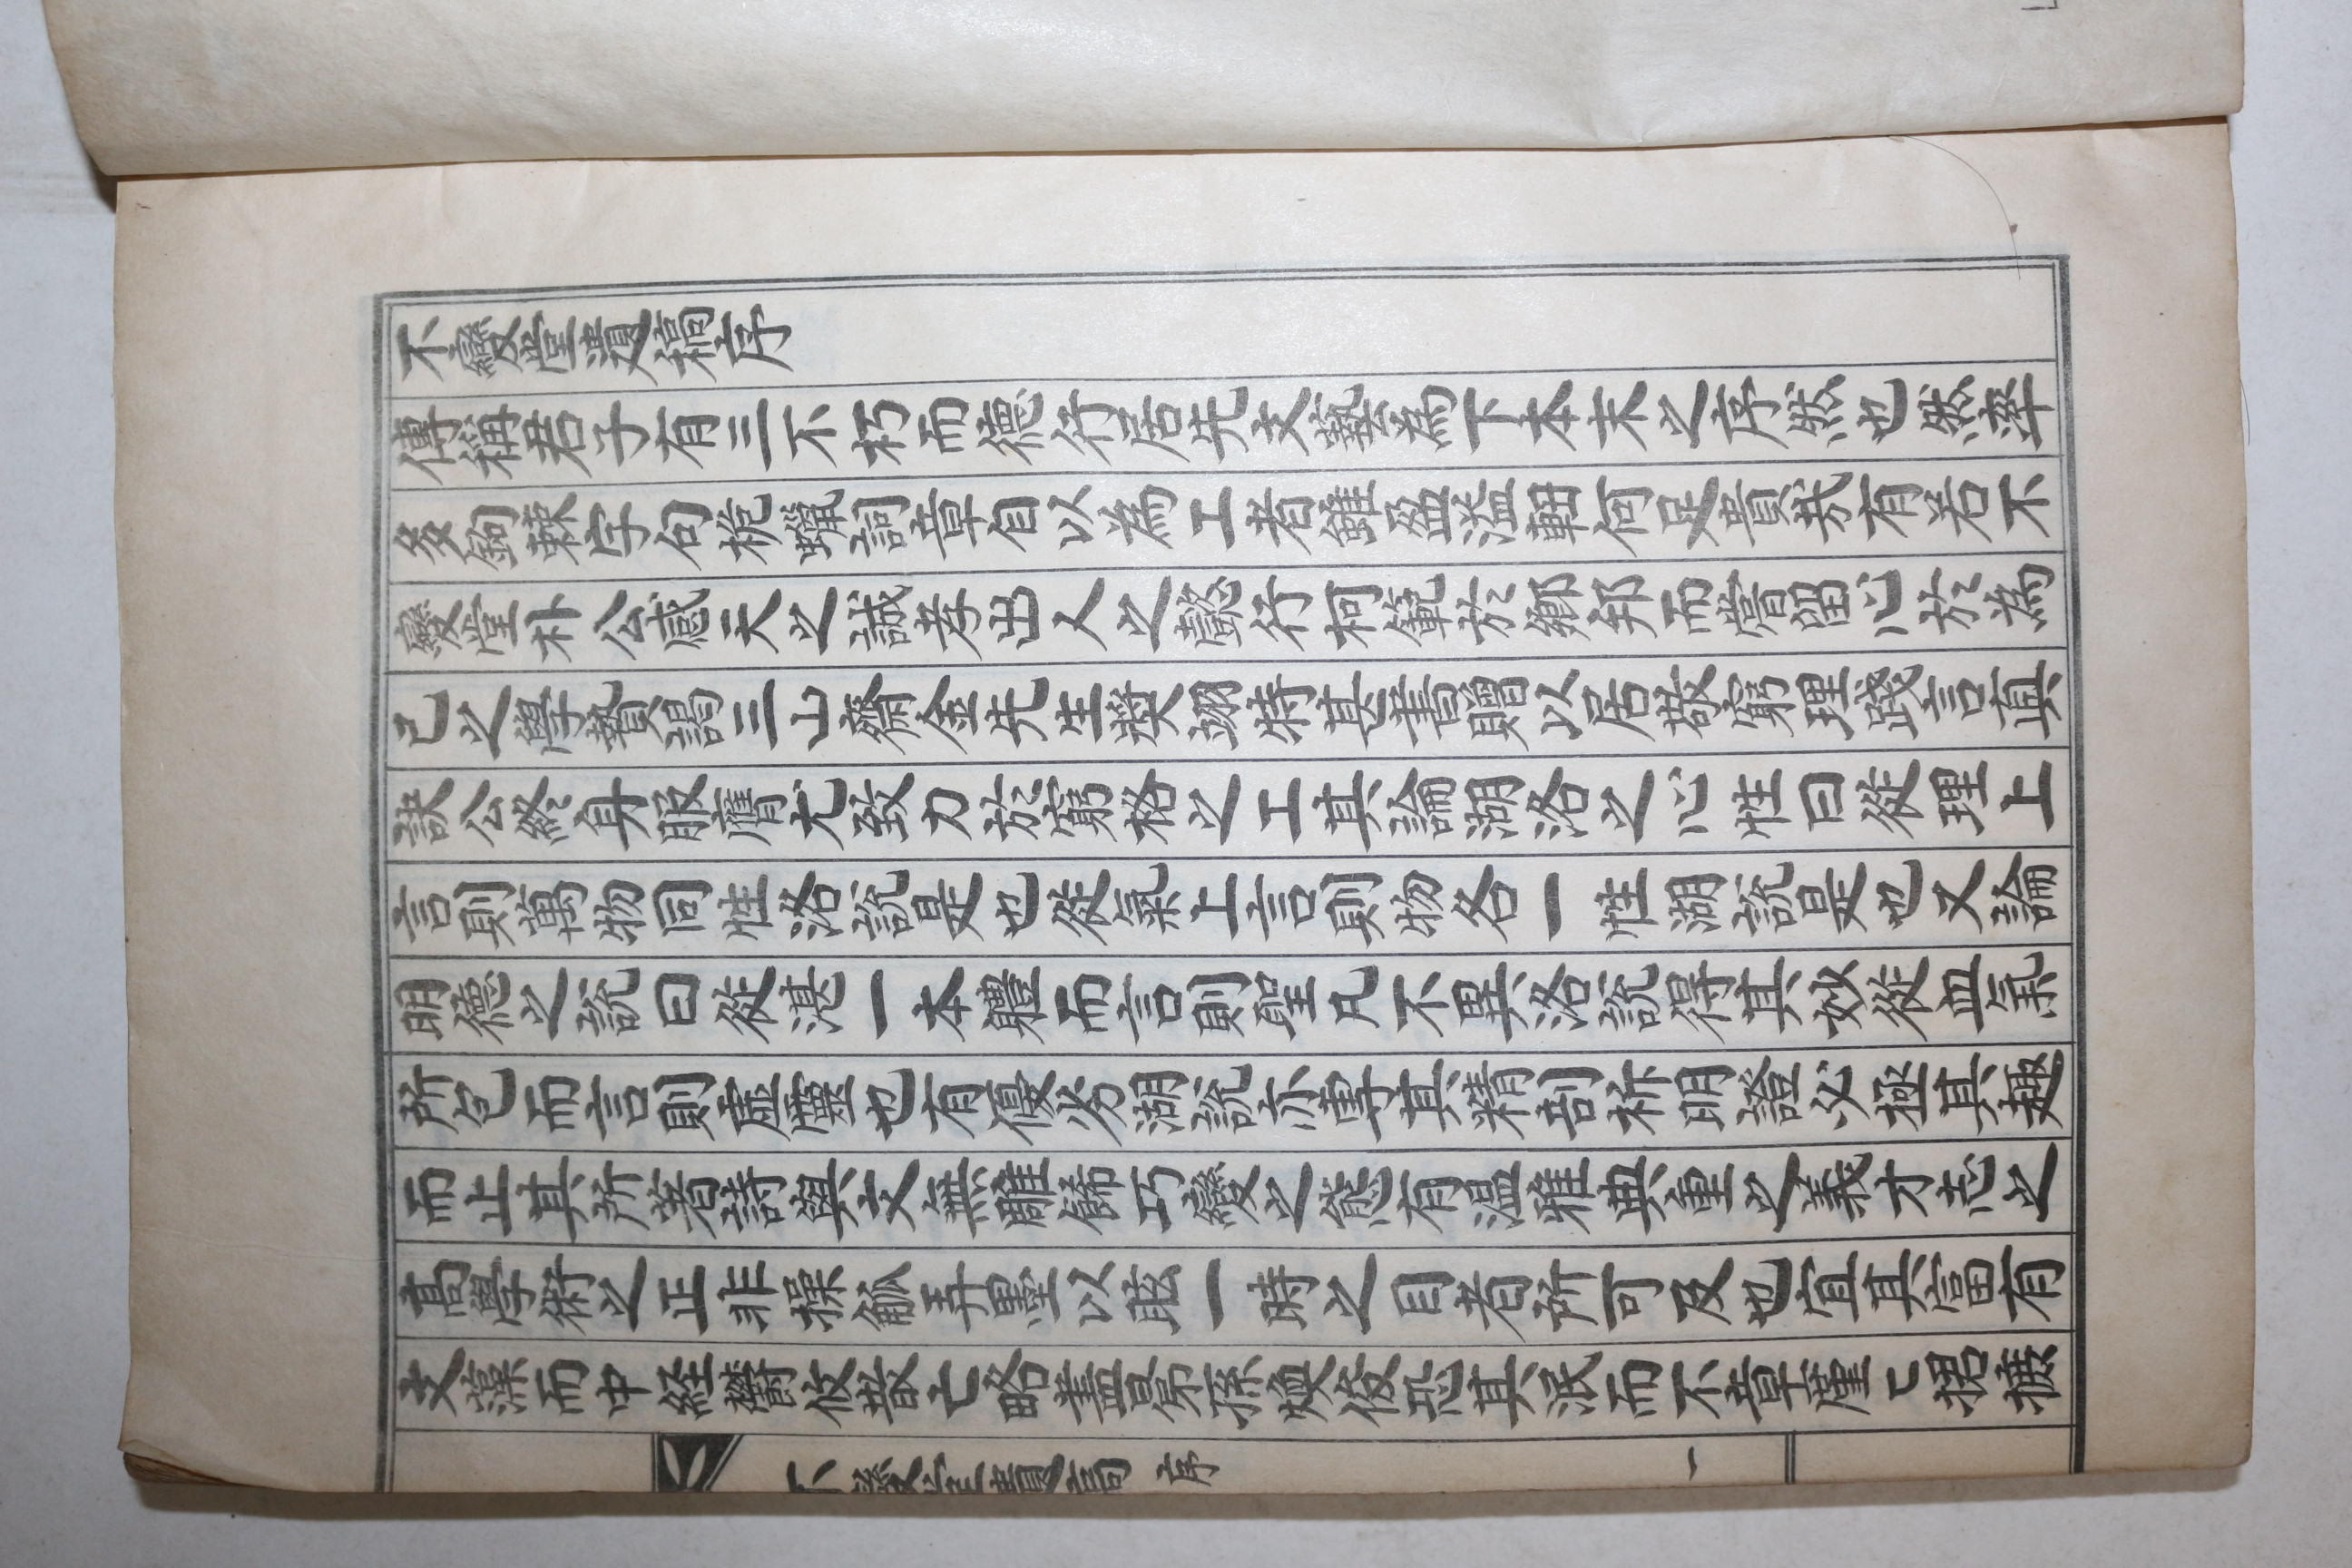 不變堂遺稿序
傳稱君子有三不朽而德行居先文藝爲下本末之序然也然率
多飣餖字句梳櫛詞章自以爲工者雖盈溢箱何足貴哉有若不
變堂朴公感天之誠孝出人之懿行柯範於鄉邦而嘗留心於爲
己之學贄謁三山齋金先生獎詡特甚書贈以居敬窮理踐言真
訣公終身服膺尤致力於窮格之工其論湖洛之心性曰從理上
言則萬物同性洛說是也從氣上言則物各一性湖說是也又論
明德之說曰從湛一本軆而言則聖凡不異洛說得其妙從血氣
所包而言則虛靈也有優劣湖說亦專其精剖析明證必極其趣
而止其所著詩與文無雕飾巧變之態有溫雅典重之義才志之
高學術之正非操觚弄墨以眩一時之目者所可及也宜其富有
文藻而中經欝攸散亡略盡曷孫煥俊恐其泯而不章廑廑掇撫
不變堂遺稿 序 一